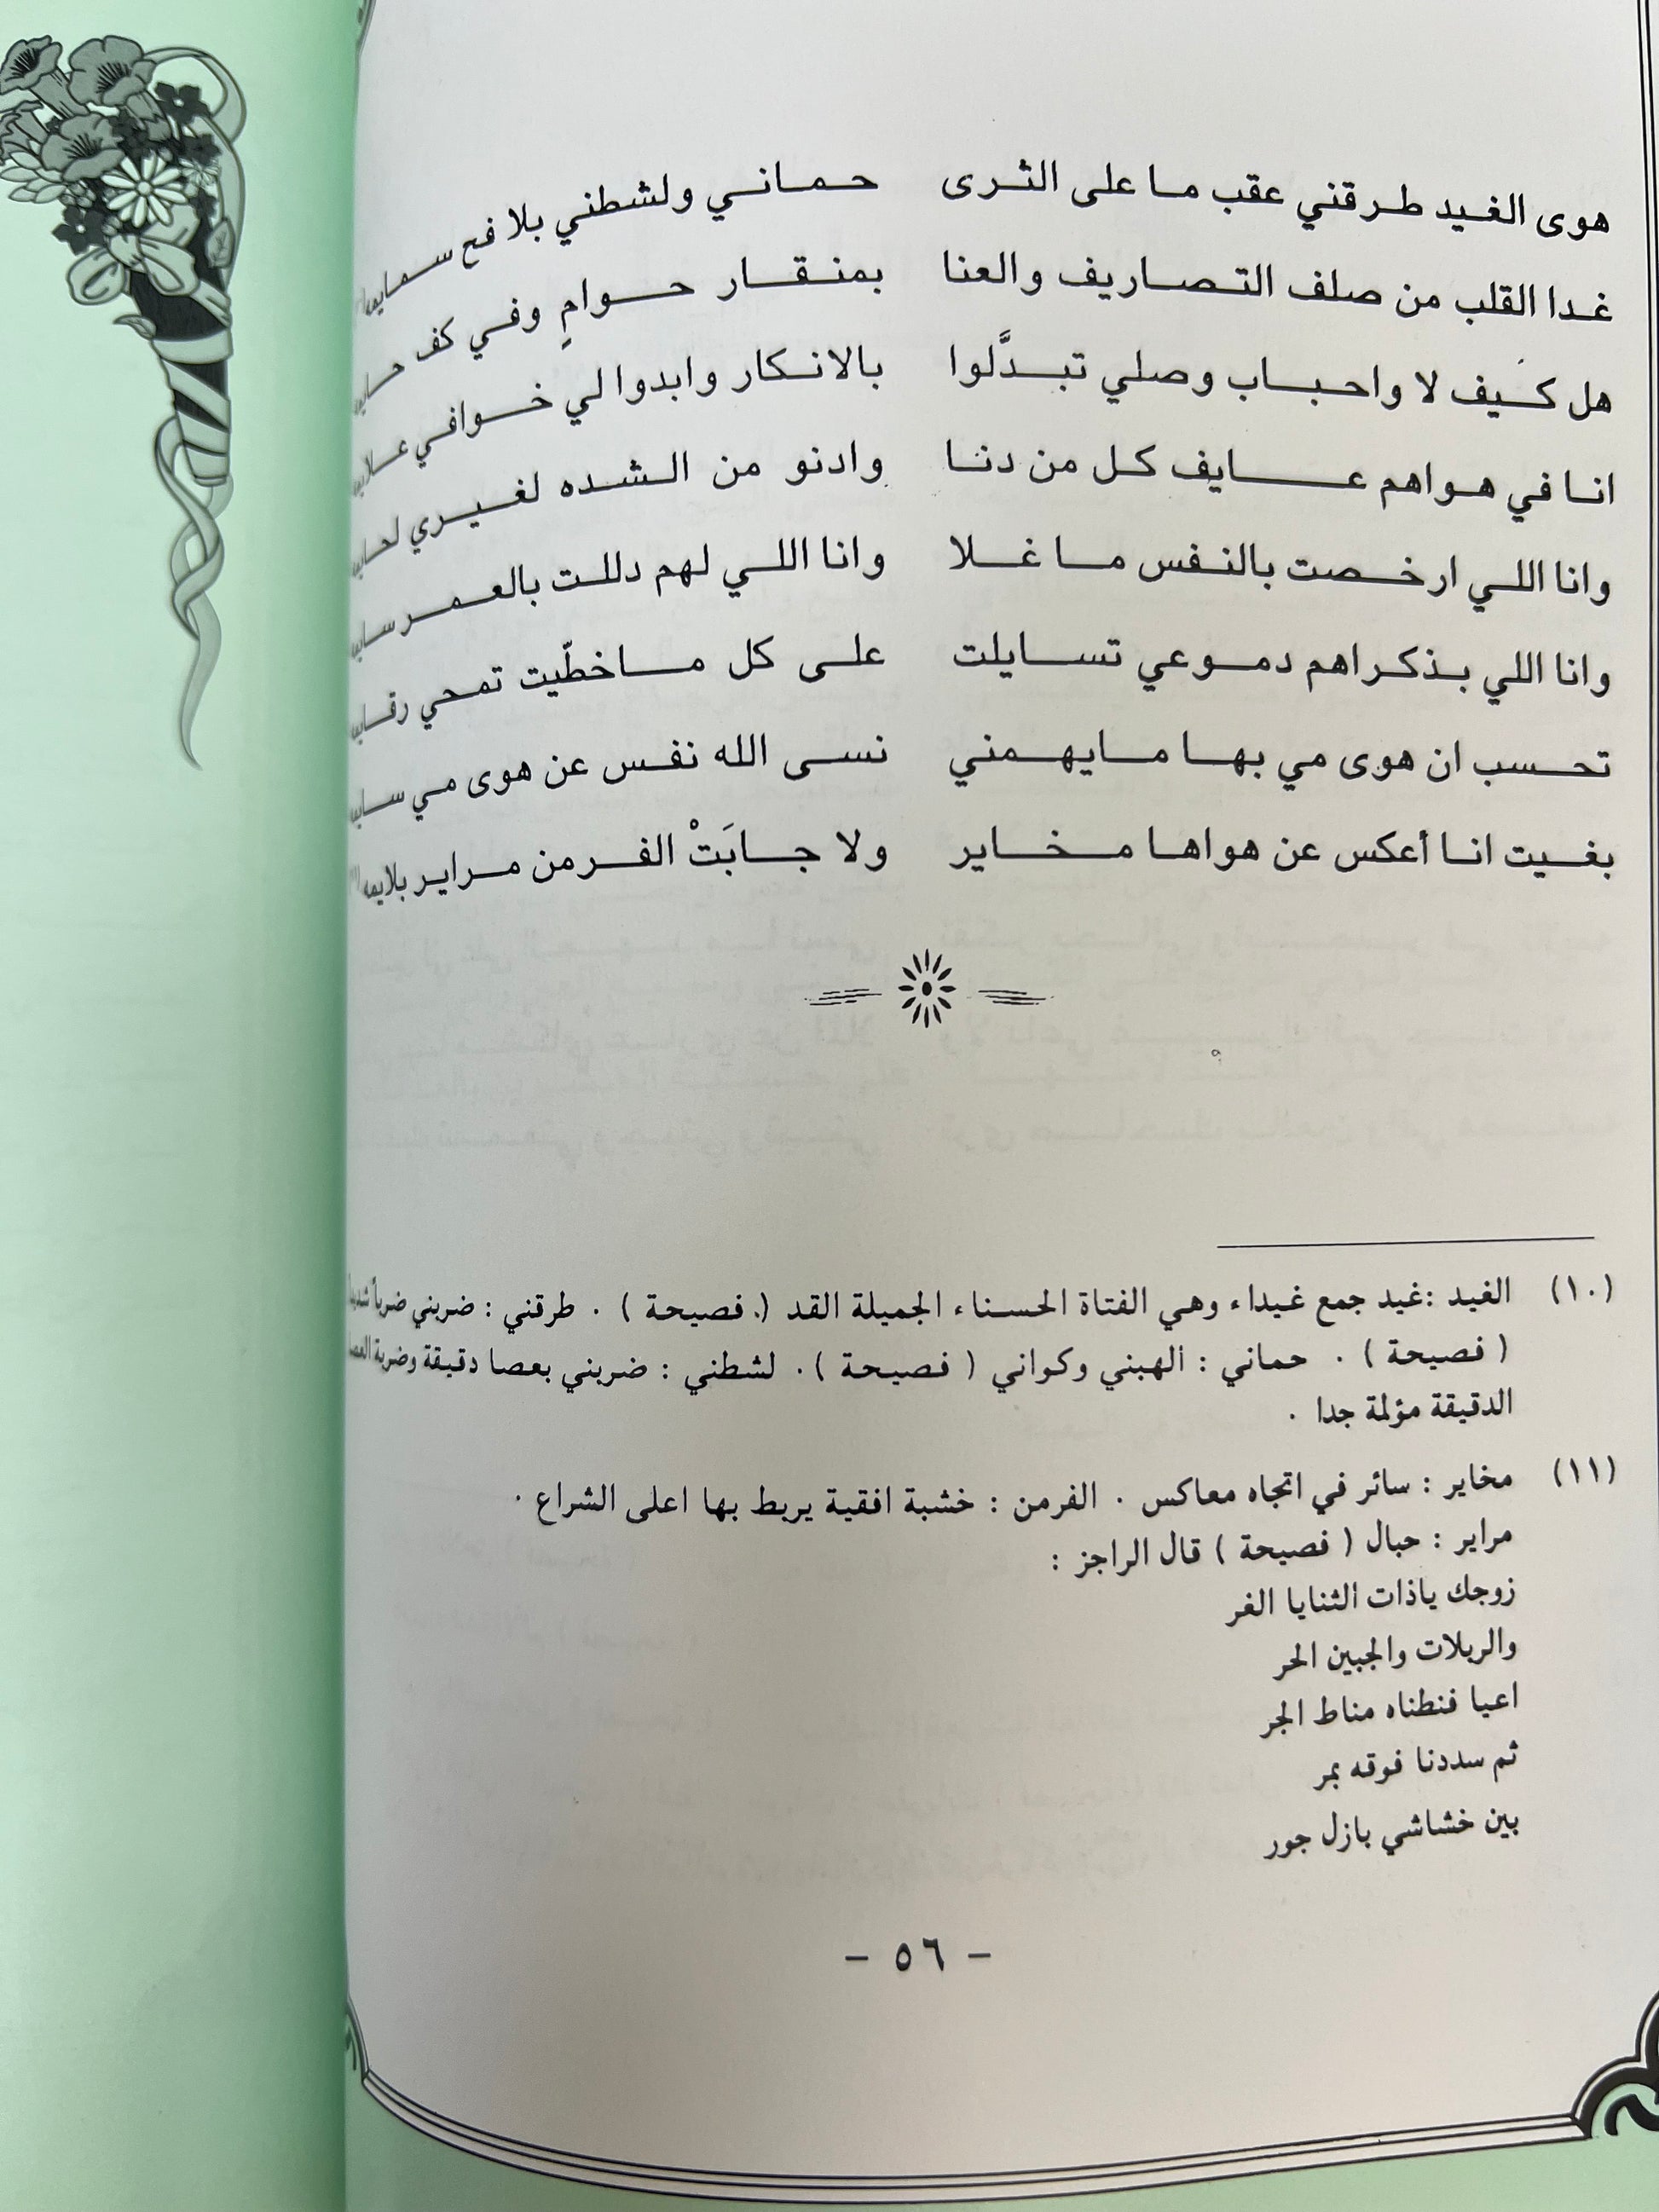 هوى الغيد طرقني عقب ما على الثرى حماني ولشطني بلا فيح سمايمه
غدا القلب من صلف التصاريف والعنا بمنقار حوامٍ وفي كف
هل كيف لا واحباب وصلي تبدَّلوا بالانكار وابدوا لي خوافي
انا في هواهم عايف كل من دنا وادنو من الشده لغيري
وانا اللي ارخصت بالنفس ما غلا وانا اللي لهم دللت بالعمر
وانا اللي بذكراهم دموعي تسايلت على كل ماخطّيت تمحي
تحسب ان هوى مي بها مايهمني نسى الله نفس عن هوى مي
بغيت انا أعكس عن هواها مخاير ولا جابَتْ الفرمن مراير بلايمه
(١٠) الغيد :غيد جمع غيداء وهي الفتاة الحسناء الجميلة القد (. فصيحة ) . طرقني : ضربني ضرباً شديداً
( فصيحة ) . حماني : الهبني وكواني ( فصيحة ) . لشطني : ضربني بعصا دقيقة وضربة العصا
الدقيقة مؤلمة جدا .
(١١) مخاير : سائر في اتجاه معاكس . الفرمن : خشبة افقية يربط بها اعلى الشراع .
مراير : حبال ( فصيحة ) قال الراجز :
زوجك ياذات الثنايا الغر
والربلات والجبين الحر
اعيا فنطناه مناط الجر
ثم سددنا فوقه بمر
بين خشاشي بازل جور
- ٥٦ -